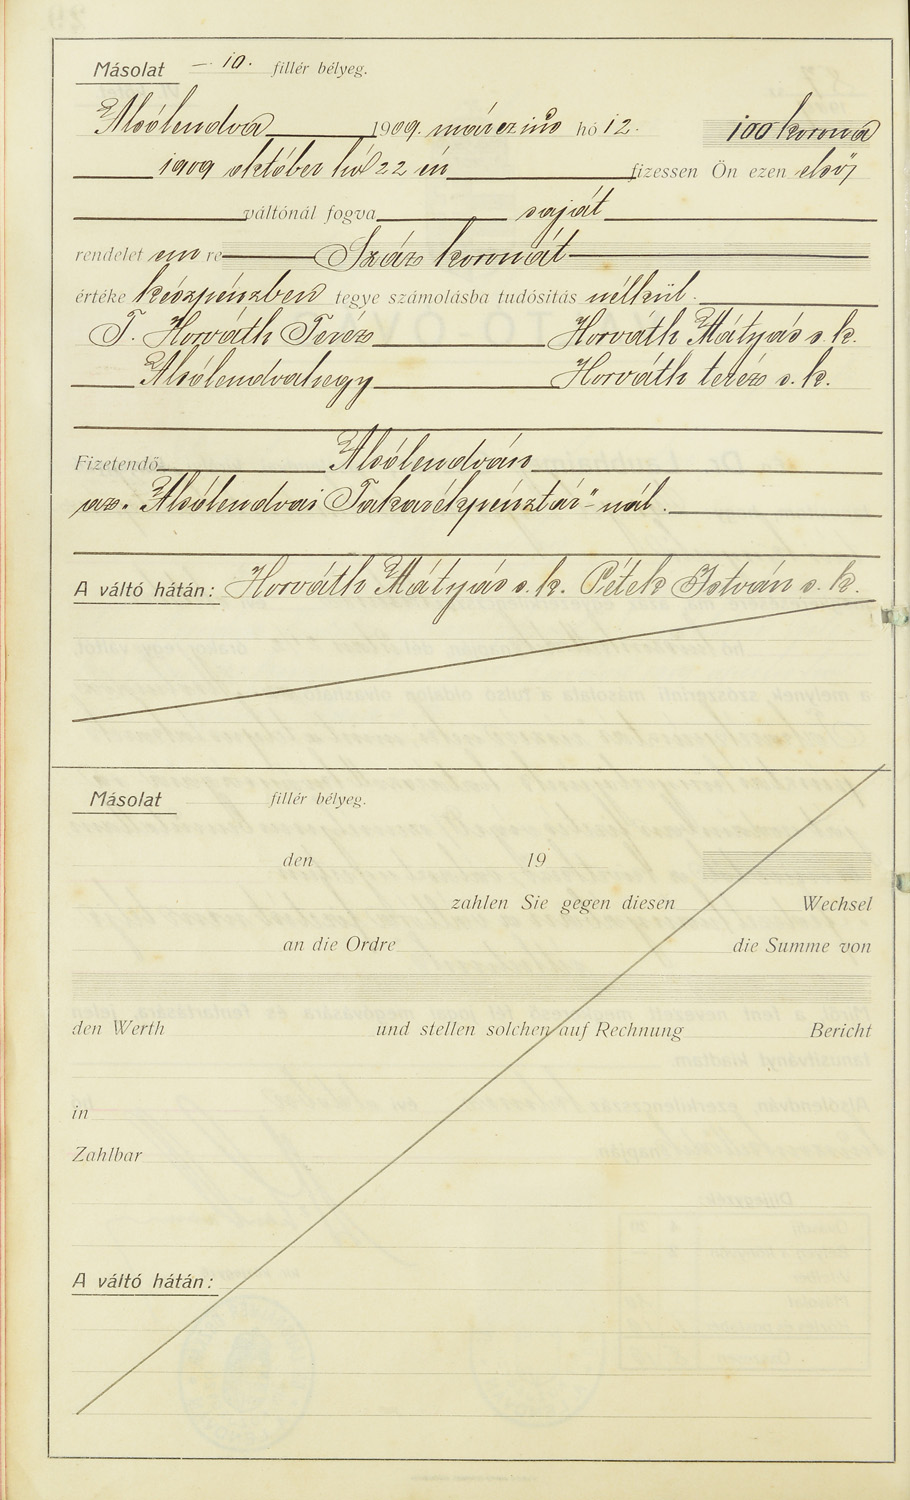 Másolat – 10. fillér bélyeg.
Alsólendva 1909. márczius hó 12. 100 korona
1909 október hó 22 én fizessen Ön ezen első
váltónál fogva saját
rendelet em re Száz koronát
értéke készpénzben tegye számolásba tudósítás nélkül.
T. Horváth Teréz Horváth Mátyás s. k.
Alsólendvahegy Horváth teréz s. k.
Fizetendő Alsólendván
az „Alsólendvai Takarékpénztár"-nál.
A váltó hátán: Horváth Mátyás s. k. Pétek István s. k.
Másolat fillér bélyeg.
den 19
zahlen Sie gegen diesen Wechsel
an die Ordre die Summe von
den Werth und stellen solchen auf Rechnung Bericht
in
Zahlbar
A váltó hátán: